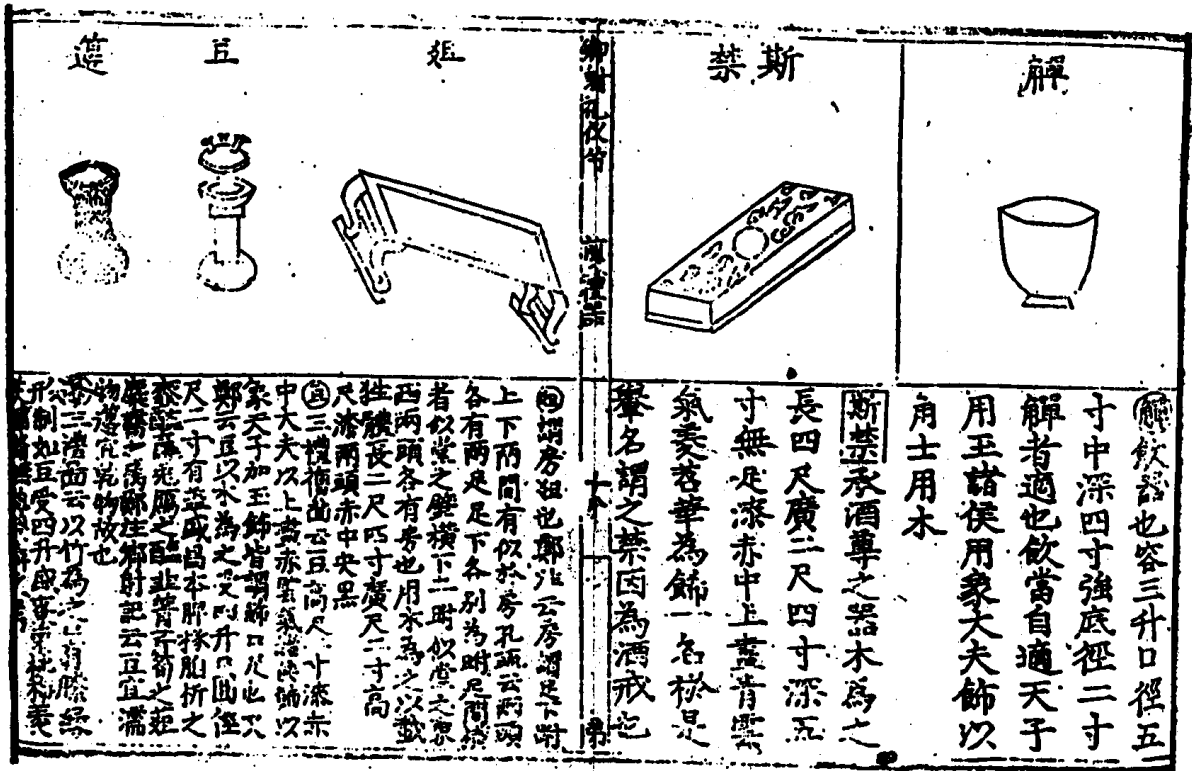 觶
觶飲器也容三升口徑五
寸中深四寸強底徑二寸
觶者適也飲當自適天子
用玉諸侯用象大夫飾以
角士用木
斯禁
斯禁承酒尊之器木為之
長四尺廣二尺四寸深五
寸無足漆赤中上畫青雲
氣菱苕華為飾一名棜是
轝名謂之禁因為酒戒也
鄉射礼仪节
俎
俎謂房俎也鄭注云房謂足下跗
上下兩間有似於房孔疏云兩頭
各有兩足足下各別為跗足間橫
者似堂之壁橫下二跗似堂之
西兩頭各有房也用木為之以載
牲體長二尺四寸廣尺二寸高
尺漆兩頭赤中央黑
豆
三禮舊圖云豆高尺寸漆赤
中大夫以上畫赤雲氣諸侯飾以
象天子加玉飾皆謂飾口足也
鄭云豆以木為之受四升口圓徑
尺二寸有蓋盛昌本脾
鄭注鄉射記云豆宜濡
物籩宜乾物故也
籩
三禮圖云以竹為之口有縢緣
形制如豆受四升盛